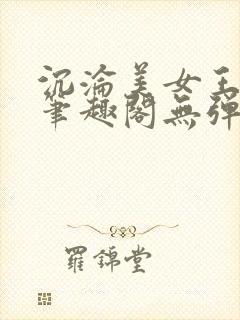 沉淪美女王
筆趣閣無彈
羅錦堂